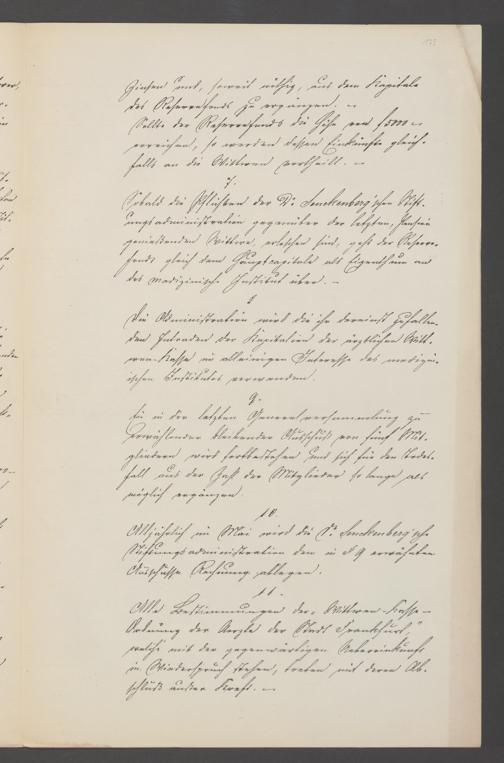 Zinsen und, soweit nöthig, aus dem Kapitale
des Reservefonds zu ergänzen. –
Sollte der Reservefonds die Höhe von f 5000 –
erreichen, so werden dessen Einkünfte gleich-
falls an die Wittwen vertheilt. –
7.
Sobald die Pflichten der Dr. Senckenberg'schen Stift-
ungsadministration gegenüber der letzten, Pension
genießenden Wittwe, erloschen sind, geht der Reserve-
fonds gleich dem Hauptcapitale als Eigenthum an
das medizinische Institut über. –
8
Die Administration wird die ihr dereinst zufallen-
den Intraden der Kapitalien der ärztlichen Witt-
wen-Kasse im alleinigen Interesse des medizin-
ischen Institutes verwenden.
9.
Ein in der letzten Generalversammlung zu
erwählender bleibender Ausschuß von fünf Mit-
gliedern wird fortbestehen und sich für den Todes-
fall aus der Zahl der Mitglieder so lange als
möglich ergänzen.
10.
Alljährlich im Mai wird die Dr. Senckenberg'sche
Stiftungsadministration dem in § 9 erwähnten
Ausschusse Rechnung ablegen.
11.
Alle Bestimmungen der „Wittwen-Kasse-
Ordnung der Aerzte der Stadt Frankfurt",
welche mit der gegenwärtigen Uebereinkunft
in Widerspruch stehen, treten mit deren Ab-
schluß außer Kraft. –